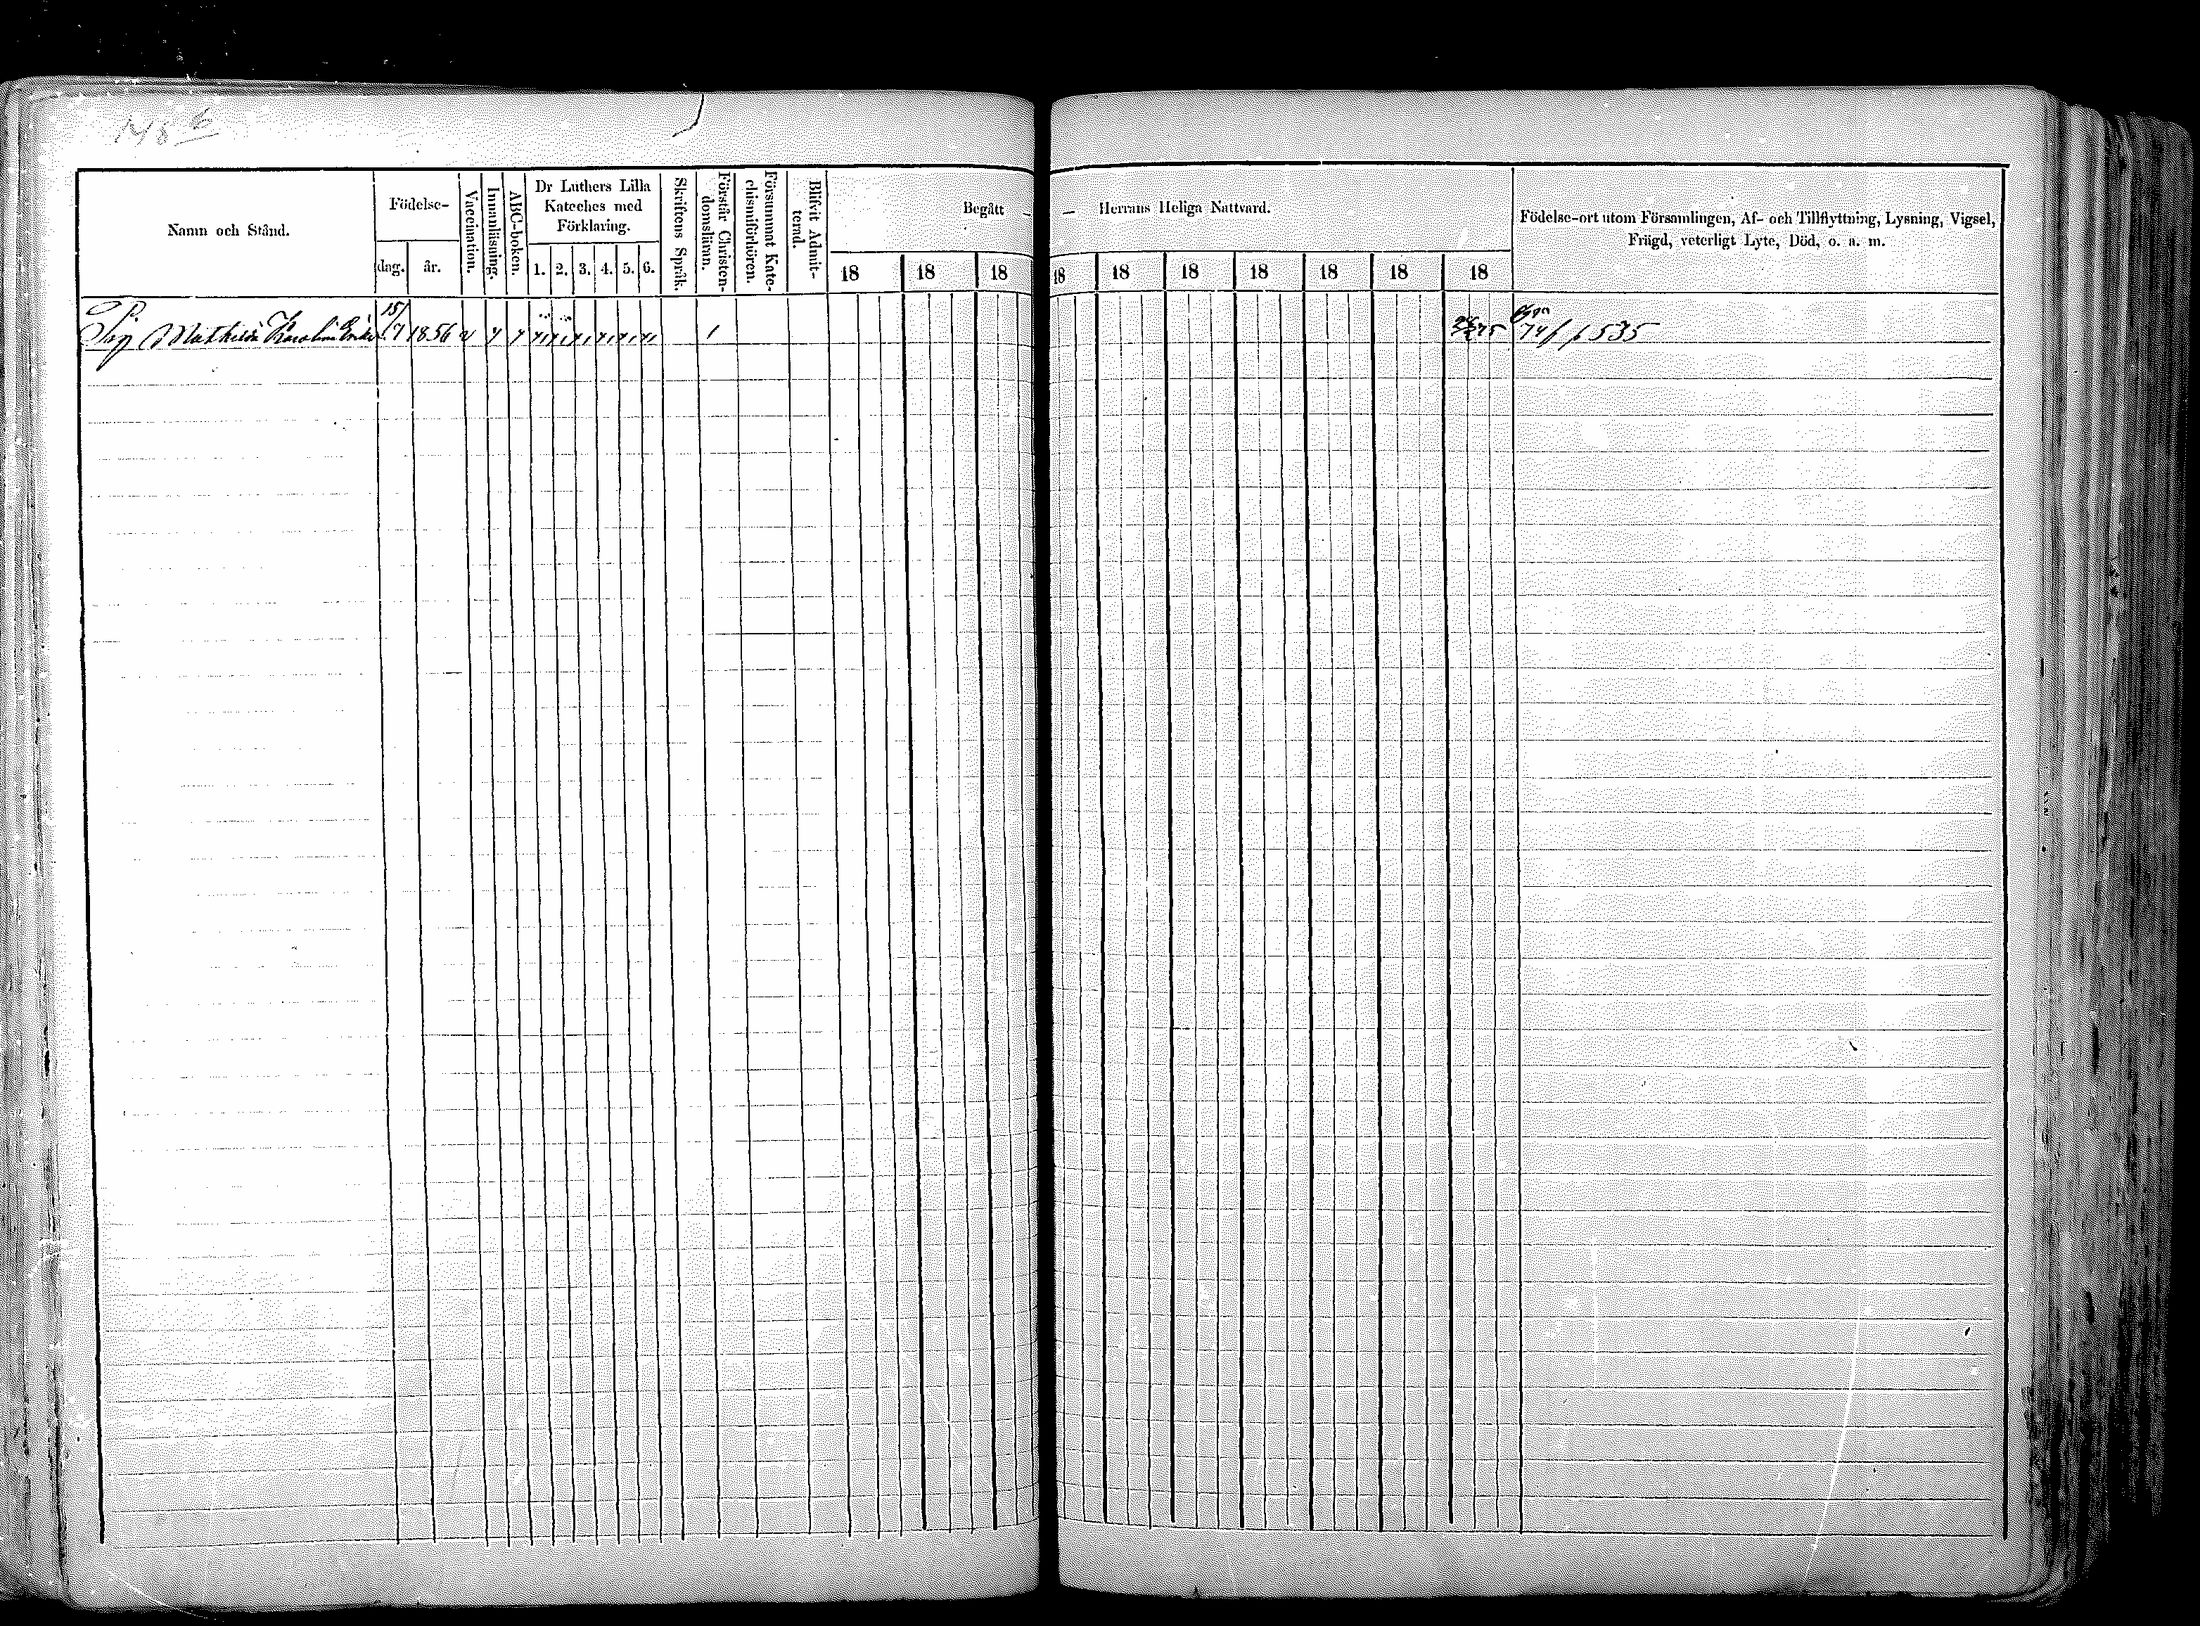 Namn och Stånd.
Födelse-
dag.
år.
Vaccination.
Innanläsning.
ABC-boken.
Dr Luthers Lilla
Kateches med
Förklaring.
1. 2. 3. 4. 5. 6.
Skriftens Språk.
Förstår Christen-
domsläran.
Försummat Kate-
chismiförhören.
Blifvit Admit-
terad.
Begått —
18 18 18
— Herrans Heliga Nattvard.
18 18 18 18 18 18 18
Födelse-ort utom Församlingen, Af- och Tillflyttning, Lysning, Vigsel,
Frägd, veterligt Lyte, Död, o. a. m.
15/
Pig Mathilda Karolina 7 1856
74/ p 535